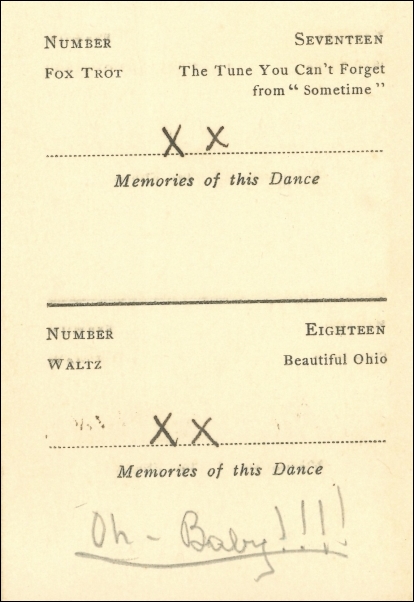 NUMBER SEVENTEEN
FOX TROT The Tune You Can't Forget
from "Sometime"
X X
Memories of this Dance
NUMBER EIGHTEEN
WALTZ Beautiful Ohio
X X
Memories of this Dance
Oh - Baby!!!!